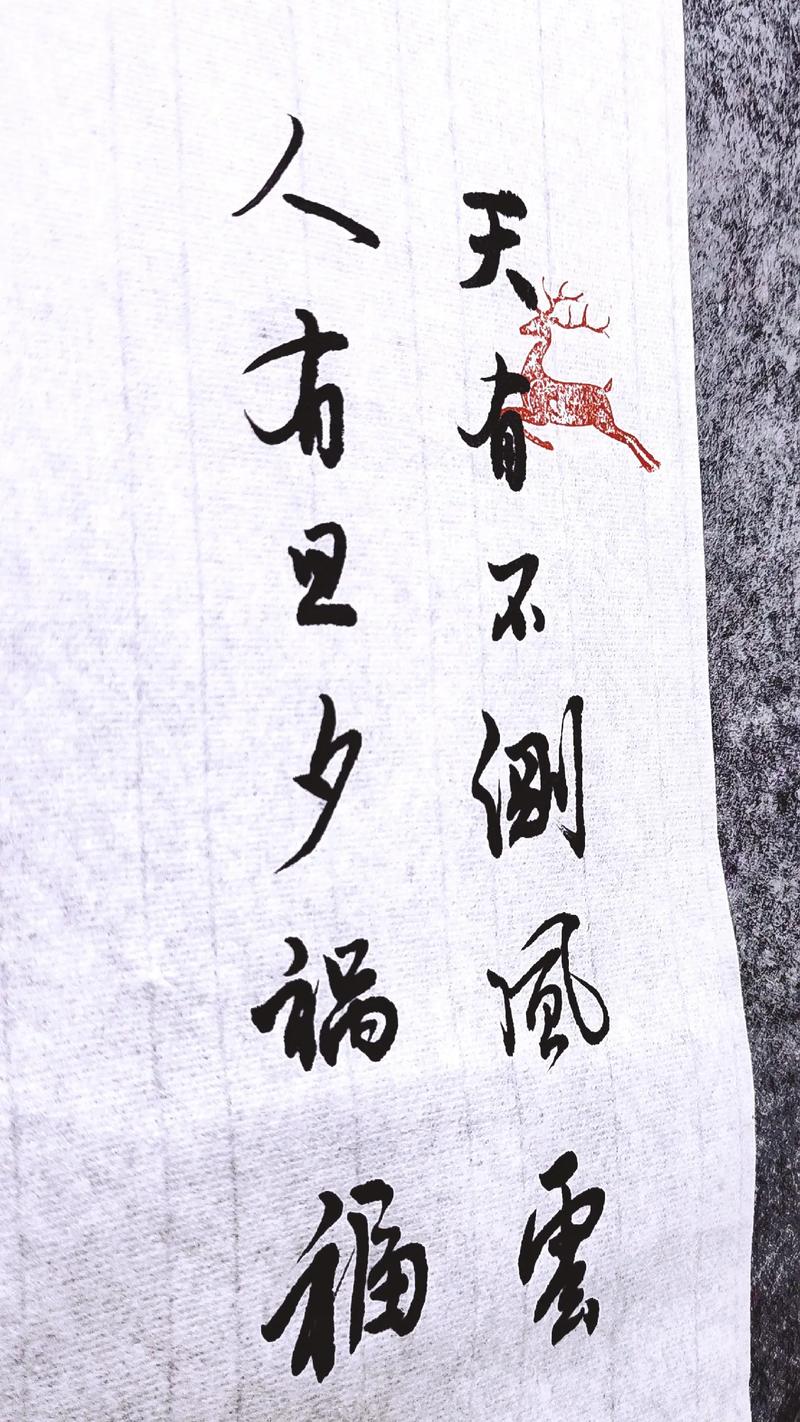 天有不側風雲
人有旦夕禍福